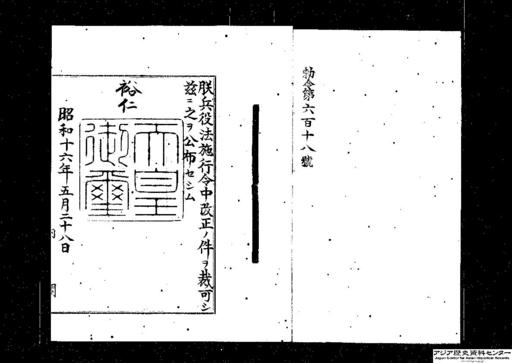 勅令第六百十八號
朕兵役法施行令中改正ノ件ヲ裁可シ
茲ニ之ヲ公布セシム
裕仁
天皇
御璽
昭和十六年五月二十八日
内閣
アジア歴史資料センター
Japan Center for Asian Historical Records